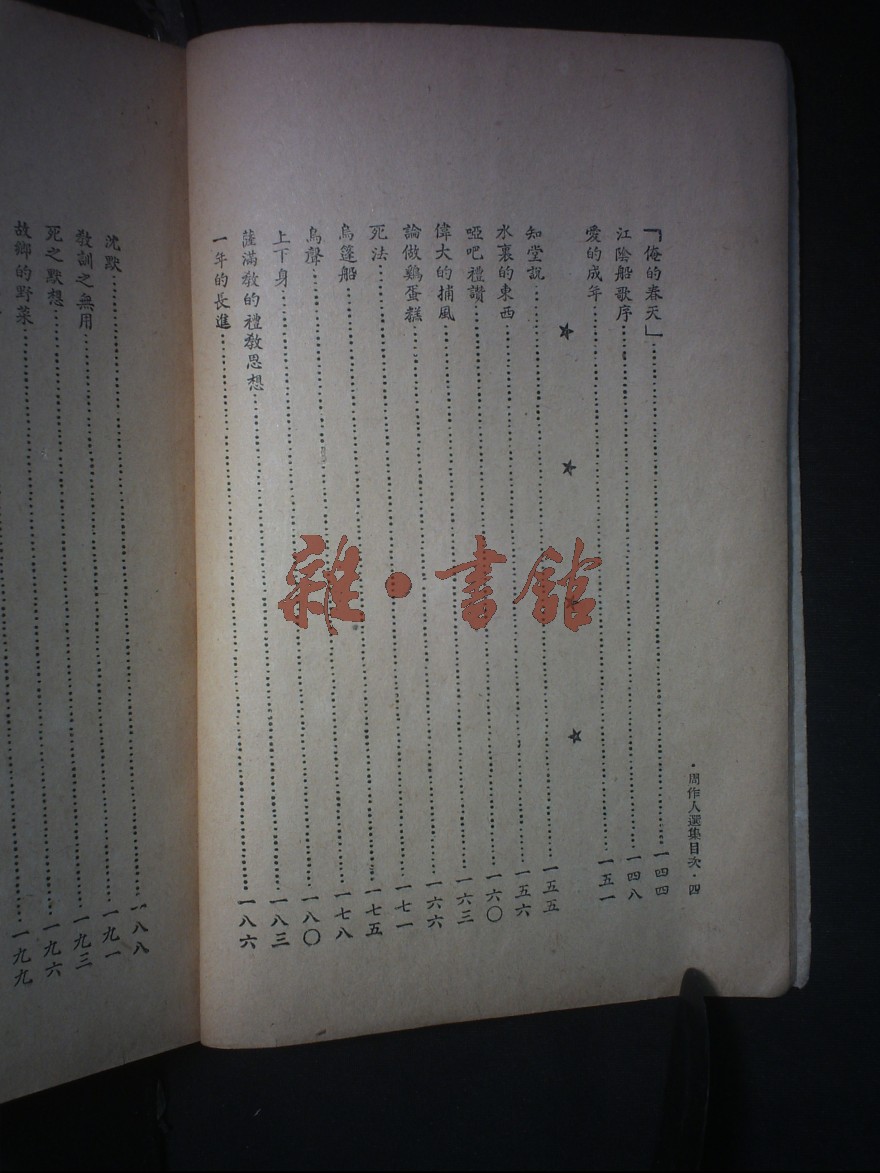 ・周作人選集目次・四
「俺的春天」……一四四
江陰船歌序……一四八
愛的成年……一五一
☆ ☆ ☆ ☆
知堂說……一五五
水裏的東西……一五六
啞吧禮讚……一六〇
偉大的捕風……一六三
論做鷄蛋糕……一六六
死法……一七一
烏篷船……一七五
鳥聲……一七八
上下身……一八〇
薩滿教的禮教思想……一八三
一年的長進……一八六
沈默……一八八
教訓之無用……一九一
死之默想……一九三
故鄉的野菜……一九六
一九九
雜・書館